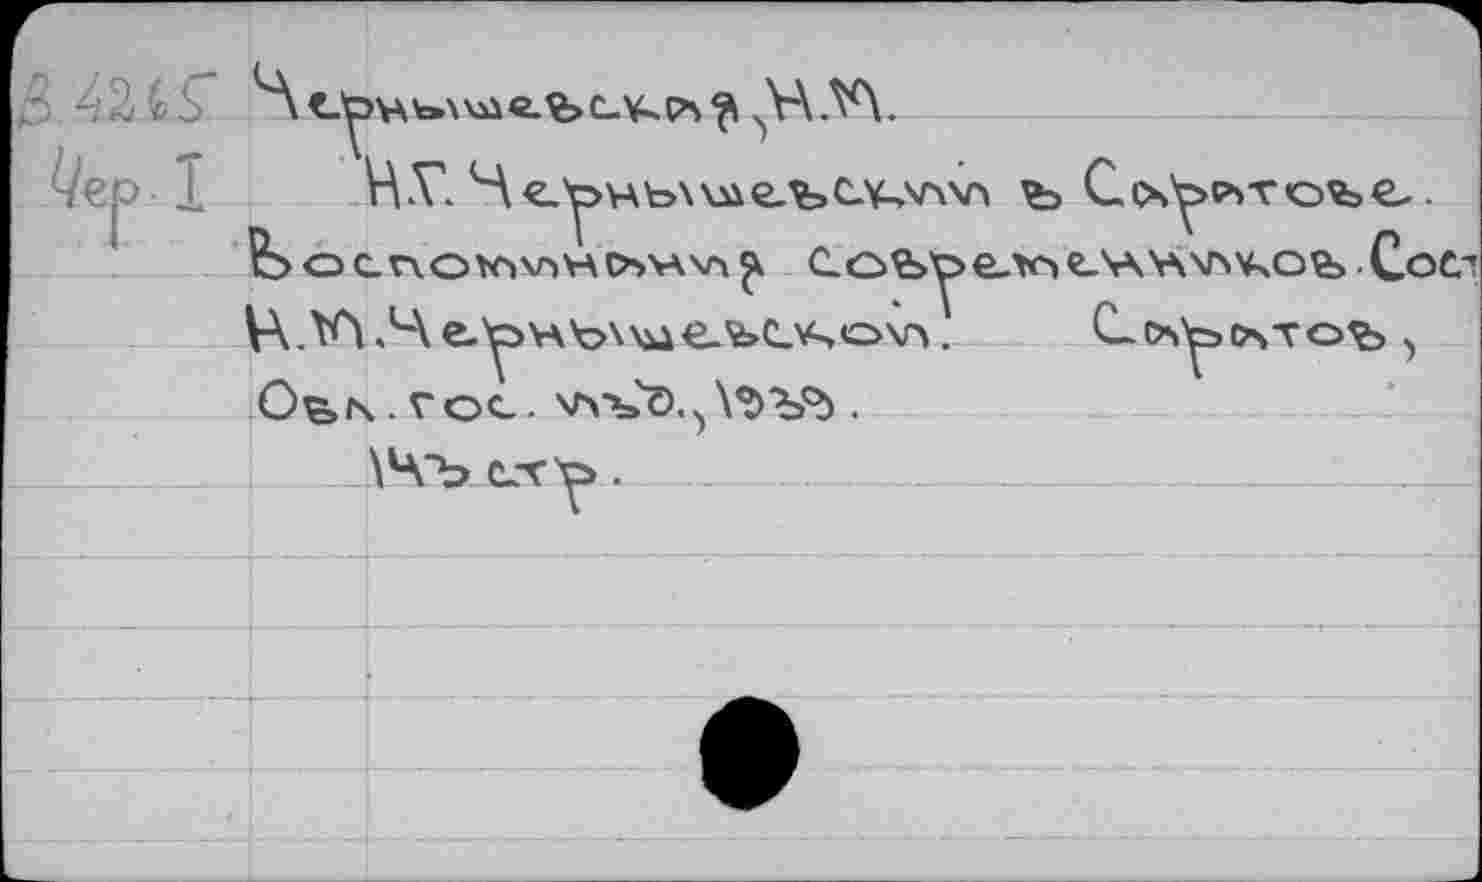 В 4265 Чернышевская, Н.М.
Чер. I Н.Г. Чернышевский в Саратове.
Воспоминания современников. Сост
Н.М. Чернышевской. Саратов,
Обл. гос. изд., 1939.
143 стр.